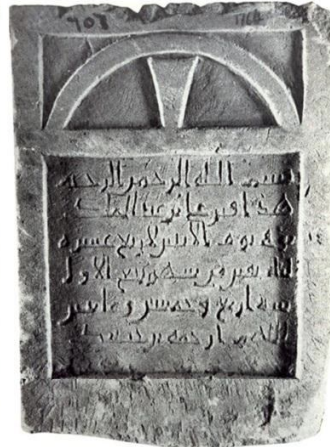 بسم الله الرحمن الرحيم
هذا قبر عبد الملك
توفي يوم الاثنين لاربع عشرة
ليلة بقين من شهر ربيع الاول
سنة اربع وخمسين ومائتين
اللهم ارحمه برحمتك